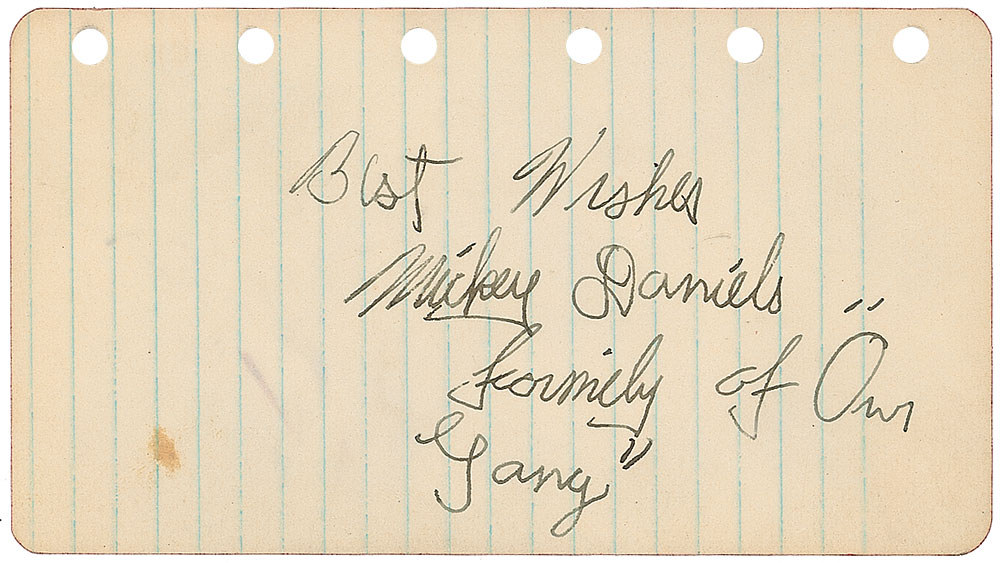 Best Wishes
Mickey Daniels
formily of "Our
Gang"